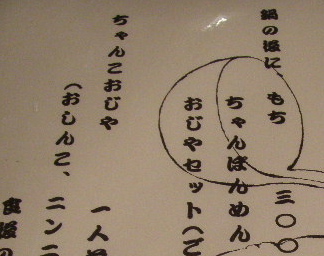 鍋の後に　もち　三〇〇
ちゃんぽんめん
おじやセット(ご
ちゃんこおじや　一人
(おしんこ、ニンニ
食後の